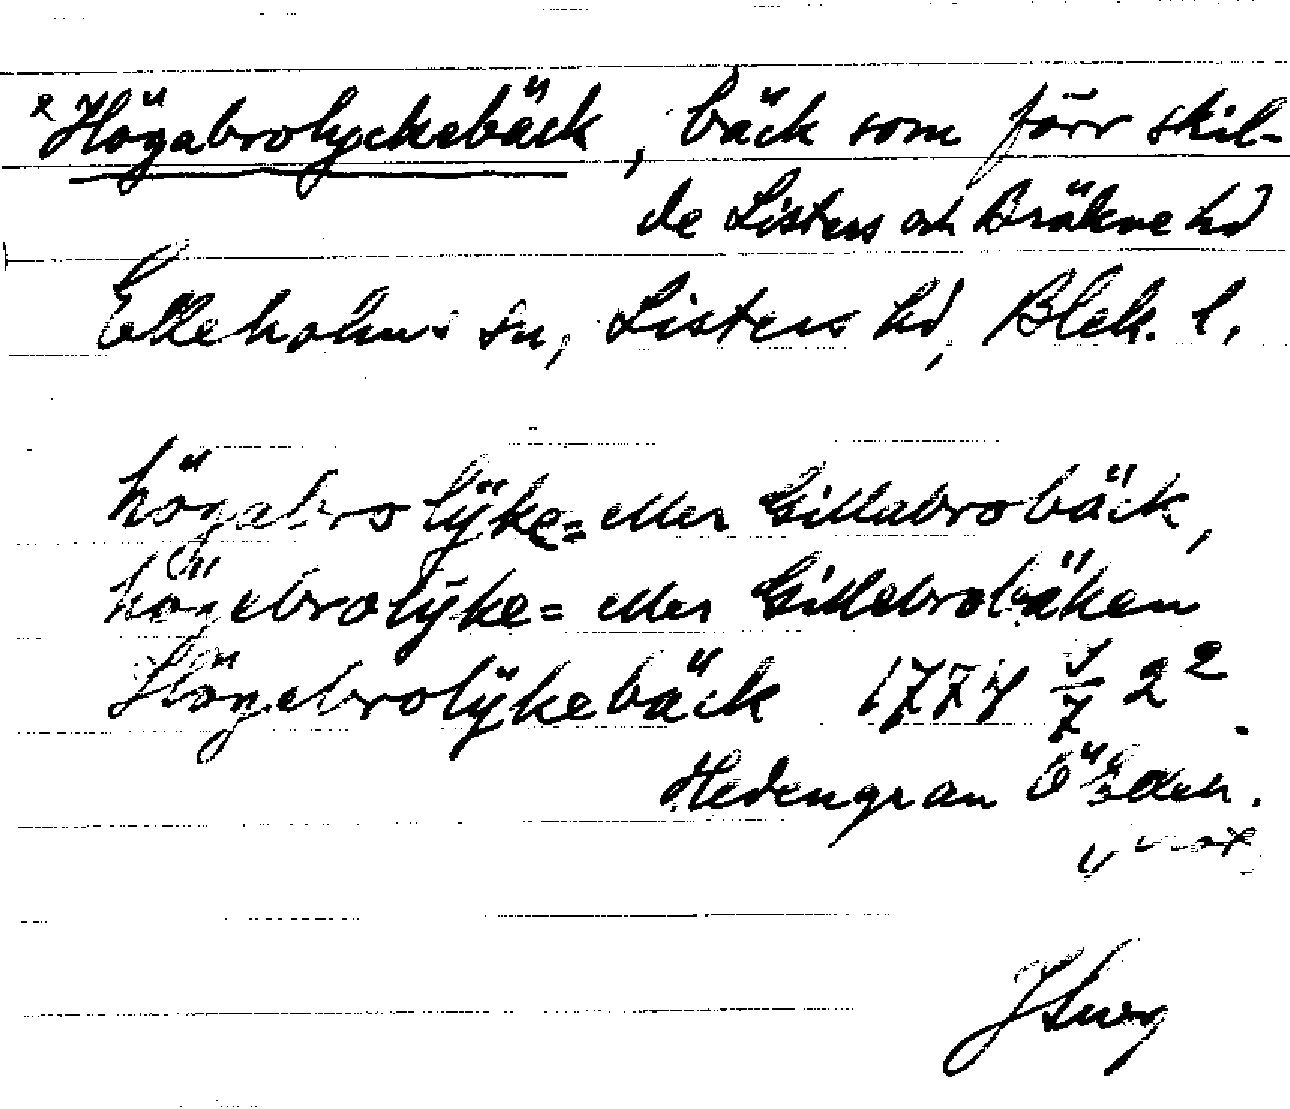 *Högabrolyckebäck, bäck som förr skil-
de Listers och Bräkne hd
Elleholms sn, Listers hd, Blek. l.
högabrolÿke= eller Gillabrobäck,
högebrolÿke= eller Gillebrobäken
Högebrolÿkebäck 1774 5/7 2²
Hedengran